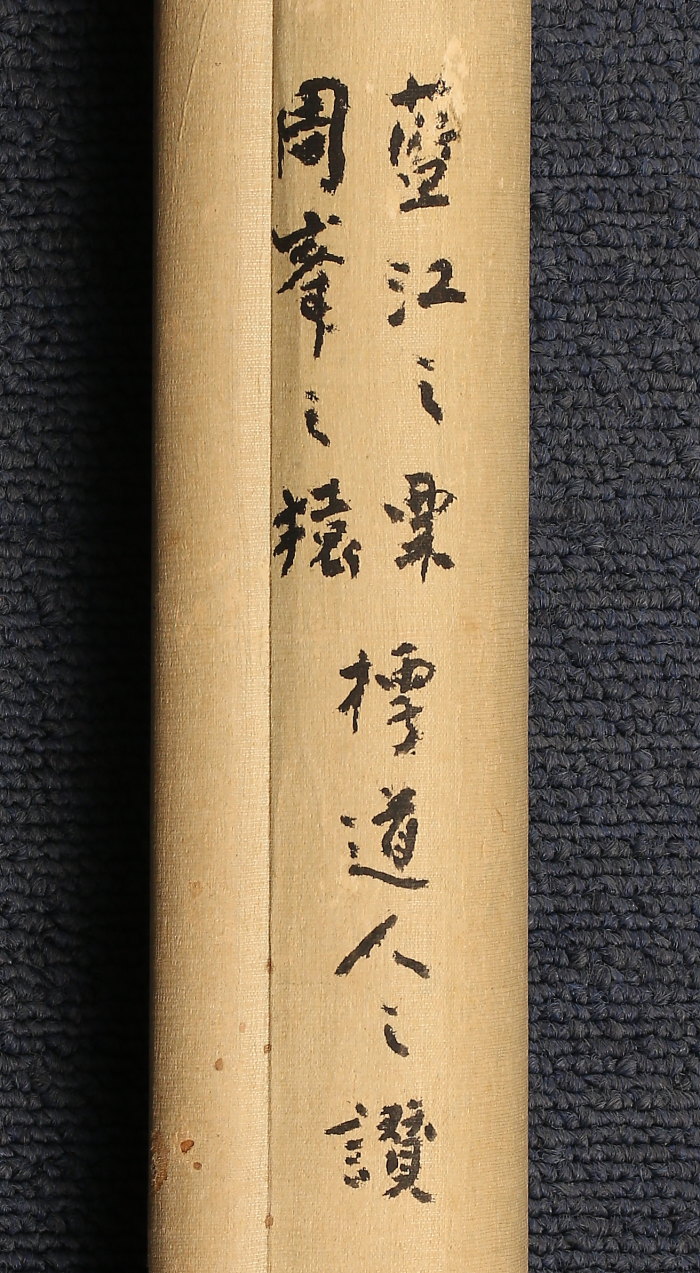 藍江之栗
周峯之猿
樗道人之讃